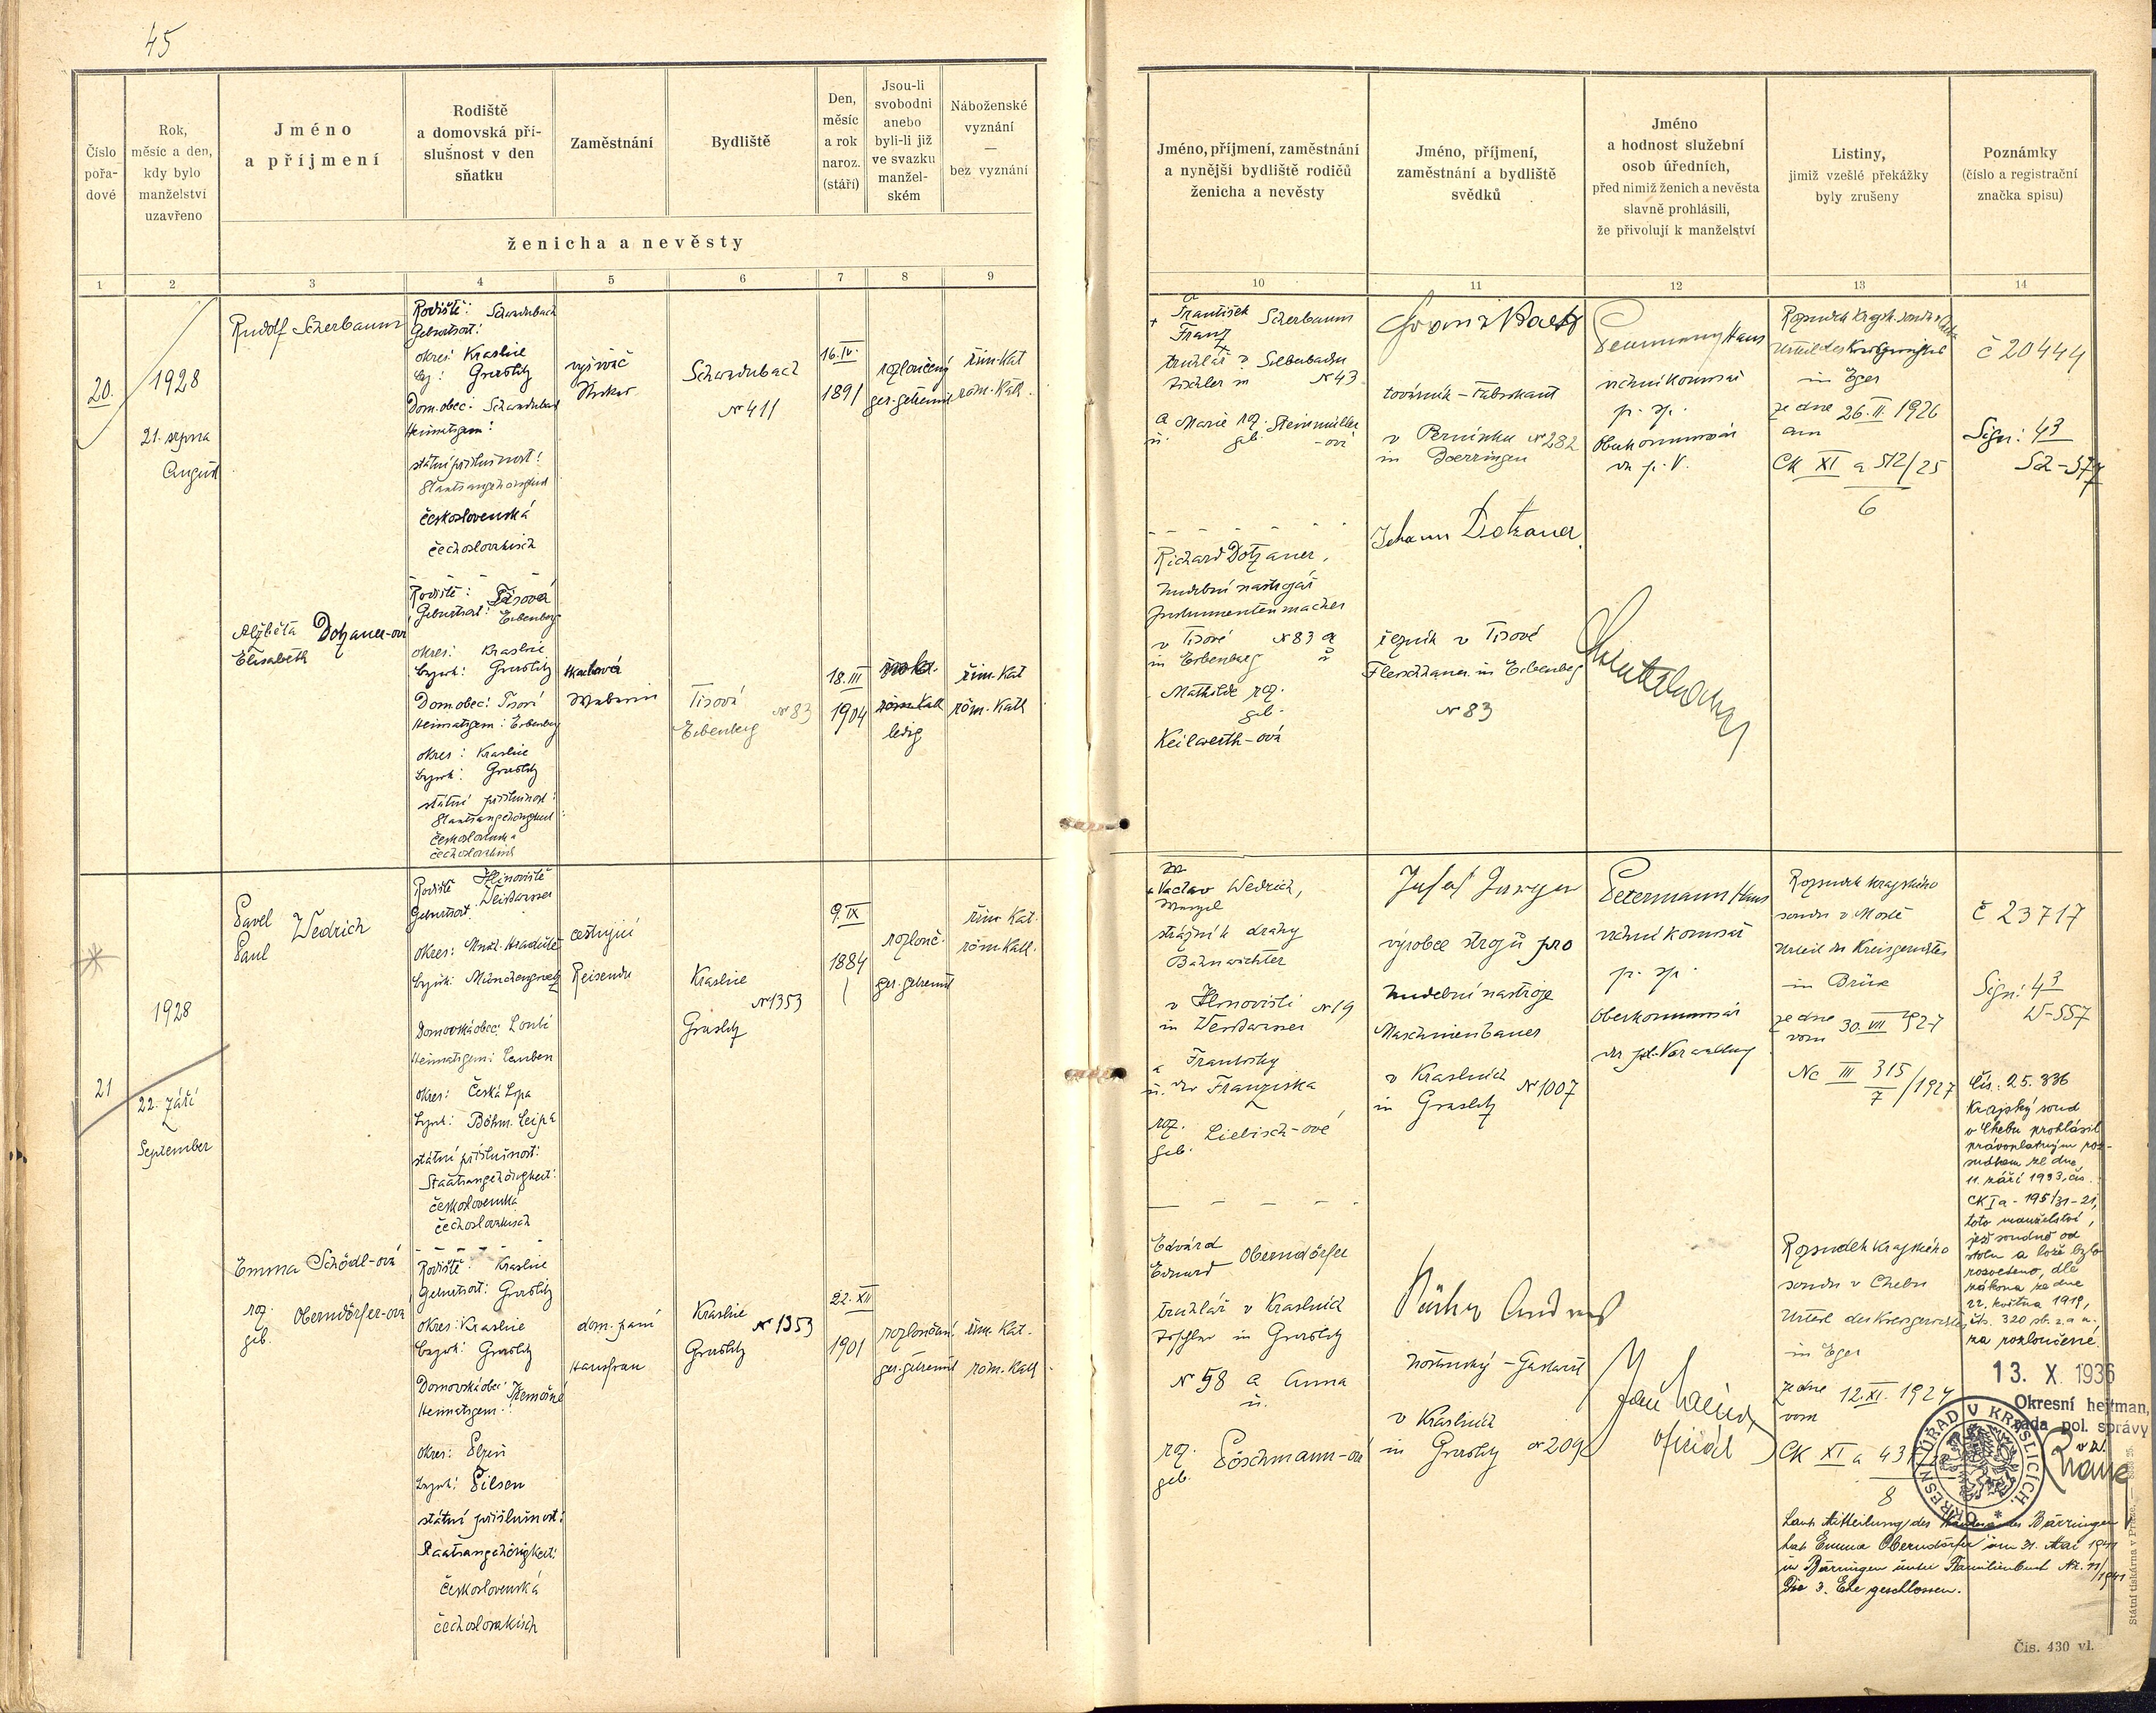 45
Číslo
pořa-
dové
Rok,
měsíc a den,
kdy bylo
manželství
uzavřeno
Jméno
a příjmení
Rodiště
a domovská pří-
slušnost v den
sňatku
Zaměstnání
Bydliště
Den,
měsíc
a rok
naroz.
(stáří)
Jsou-li
svobodni
anebo
byli-li již
ve svazku
manžel-
ském
Náboženské
vyznání
—
bez vyznání
ženicha a nevěsty
1 2 3 4 5 6 7 8 9
20.
1928
21. srpna
August
Rudolf Scherbaum
Rodiště: Schwaderbach
Geburtsort:
okres: Kraslice
Bez: Graslitz
Dom. obec: Schwaderbach
Heimatgem:
státní příslušnost:
Staatsangehörigkeit
československá
čechoslovakisch
vyšívač
Sticker
Schwaderbach
№ 411
16. IV.
1891
rozloučený
ger. getrennt
řím. Kat
röm. Kath.
Alžběta Dotzauer-ová
Elisabeth
Rodiště: Tisová
Geburtsort: Eibenberg
okres: Kraslice
Bezirk: Graslitz
Dom obec: Tisová
Heimatgem: Eibenberg
okres: Kraslice
Bezirk: Graslitz
státní příslušnost:
Staatsangehörigkeit:
československá
čechoslovakisch
tkadlová
Weberin
Tisová
Eibenberg № 83
18. III
1904
röm. Kath
ledig
řím. Kat
röm. Kath
21
1928
22. září
September
Pavel
Paul
Wedrich
Rodiště Hlinoviště
Geburtsort Weißwasser
okres: Mnich. Hradiště
Bezirk: Münchengrätz
Domovská obec: Loubí
Heimatgem: Lauben
okres: Česká Lípa
Bezirk: Böhm. Leipa
státní příslušnost:
Staatsangehörigkeit:
československá
čechoslovakisch
cestující
Reisender
Kraslice
№ 1353
Graslitz
9. IX
1884
rozlouč.
ger. getrennt
řím. Kat.
röm. Kath.
Emma Schödl-ová
roz.
geb.
Oberndörfer-ová
Rodiště: Kraslice
Geburtsort: Graslitz
okres: Kraslice
Bezirk: Graslitz
Domovská obec:
Heimatgem.:
okres: Plzeň
Bezirk: Pilsen
státní příslušnost:
Staatsangehörigkeit:
československá
čechoslovakisch
dom. paní
Hausfrau
Kraslice
№ 1353
Graslitz
22. XII
1901
rozloučená
ger. getrennt
řím. Kat.
röm. Kath
Jméno, příjmení, zaměstnání
a nynější bydliště rodičů
ženicha a nevěsty
Jméno, příjmení,
zaměstnání a bydliště
svědků
Jméno
a hodnost služební
osob úředních,
před nimiž ženich a nevěsta
slavně prohlásili,
že přivolují k manželství
Listiny,
jimiž vzešlé překážky
byly zrušeny
Poznámky
(číslo a registrační
značka spisu)
10 11 12 13 14
František
Franz
Scherbaum
truhlář v Silberbachu
Tischler in № 43
a Marie roz. Steinmüller
u. geb. -ová
továrník – Fabrikant
v Perninku № 282
in Baerringen
vrchní komisař
p. sp.
Oberkommissär
der p. V.
Rozsudek Krajsk. soudu v Chebu
Urteil des Kreisgerichtes
in Eger
ze dne 26. II. 1926
am
Ck XI a 512/25
6
č 20444
Sign: 43
S2-577
Richard Dotzauer,
hudební nástrojář
Instrumentenmacher
v Tisové № 83 a
in Eibenberg u
Mathilde roz.
geb.
Keilwerth-ová
Johann Dotzauer
řezník v Tisové
Fleischhauer in Eibenberg
№ 83
Václav Wedrich,
Wenzel
strážník dráhy
Bahnwächter
v Hlinovišti № 19
in Weisswasser
a Františky
u. der Franziska
roz.
geb.
Liebisch-ové
výrobce strojů pro
hudební nástroje
Maschinenbauer
v Kraslicích № 1007
in Graslitz
Petermann Hans
vrchní komisař
p. sp.
Oberkommissär
der pol. Verwaltung
Rozsudek Krajského
soudu v Mostě
Urteil des Kreisgerichtes
in Brüx
ze dne 30. VII 1927
vom
Nc III 315/1927
7
č 23717
Sign: 43
W-557
Čís.: 25.836
Krajský soud
v Chebu prohlásil
právoplatným roz-
sudkem ze dne
11. září 1933, čís.
CK I a - 195/31-21,
toto manželství,
jež soudně od
stolu a lože bylo
rozvedeno, dle
zákona ze dne
22. května 1919,
čís. 320 sb. z. a n.
za rozloučené.
13. X. 1936
Okresní hejtman,
rada pol. správy
v z.
OKRESNÍ ÚŘAD V KRASLICÍCH.
Edvard
Eduard
Oberndörfer
truhlář v Kraslicích
Tischler in Graslitz
№ 58 a Anna
u.
roz.
geb.
Pöschmann-ová
hostinský – Gastwirt
v Kraslicích
in Graslitz № 209
oficiál
Rozsudek Krajského
soudu v Chebu
Urteil des Kreisgerichtes
in Eger
ze dne 12. XI. 1924
vom
Ck XI a 43
8
Laut Mitteilung des Standesamtes Bärringen
hat Emma Oberndörfer am 31. Mai 1941
in Bärringen unter Familienbuch Nr. 11/1941
die 3. Ehe geschlossen.
Státní tiskárna v Praze.
Čís. 430 vl.